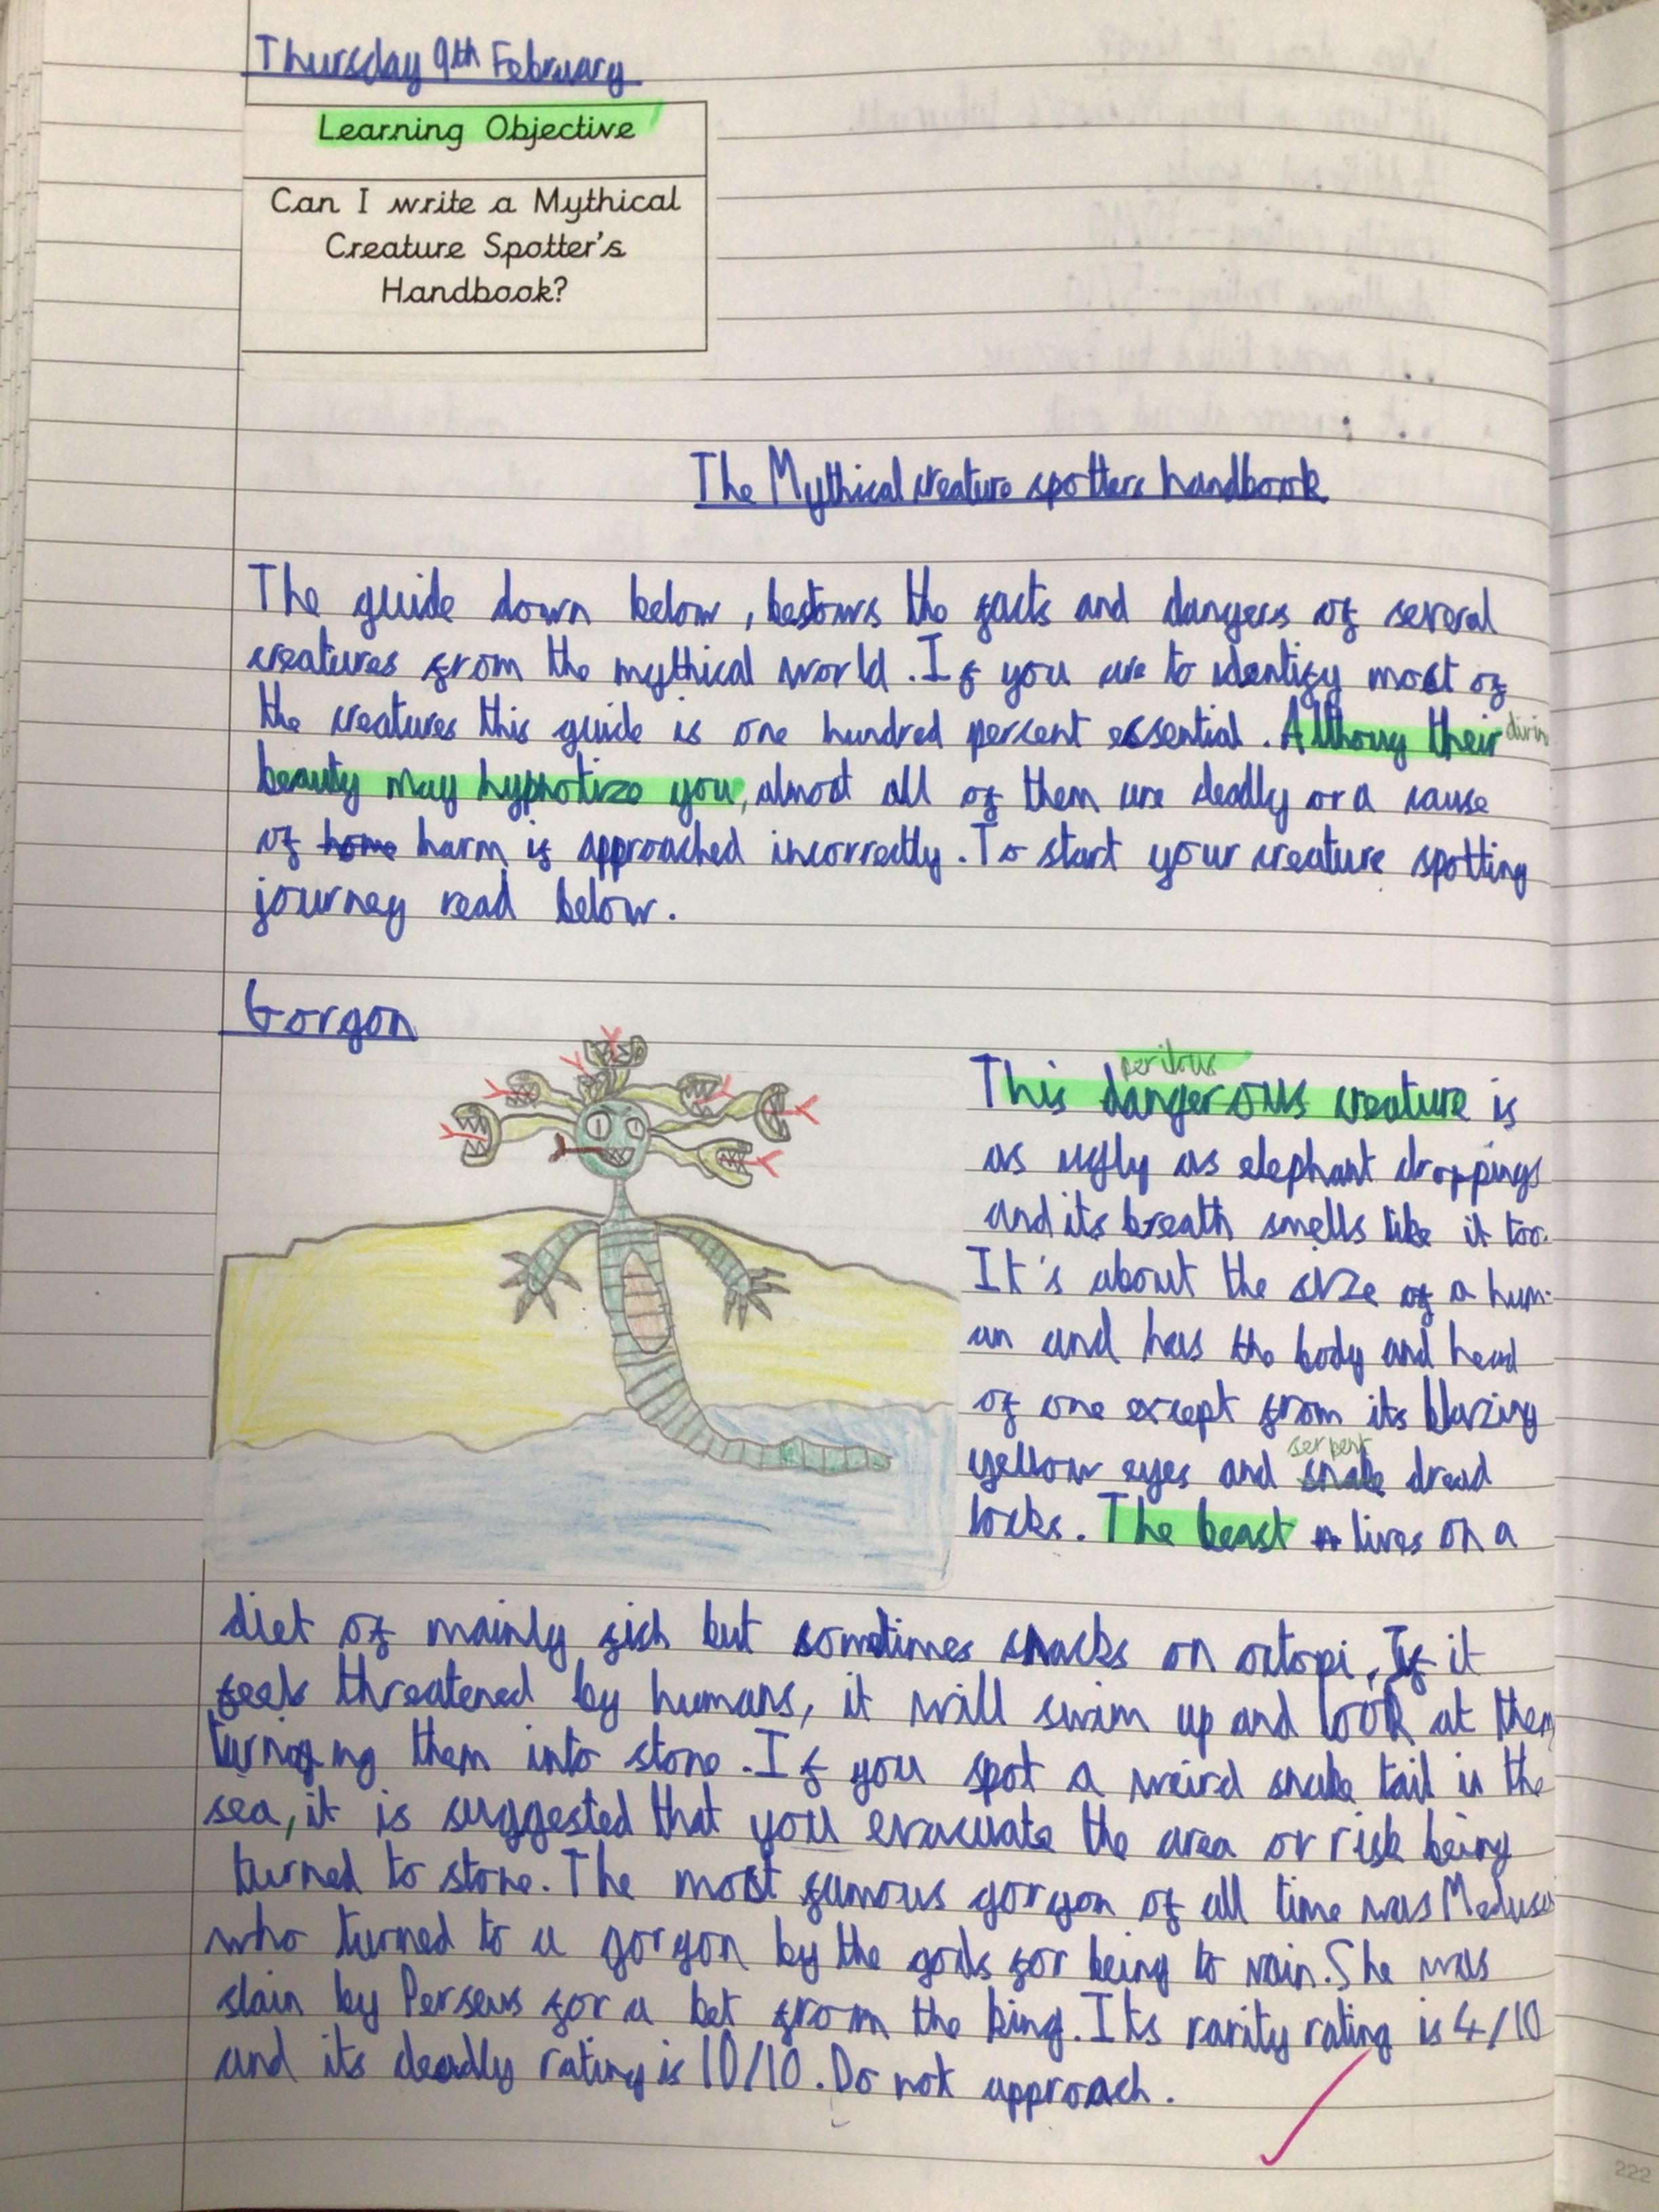 Thursday 9th February
Learning Objective
Can I write a Mythical
Creature Spotter's
Handbook?
The Mythical creature spotters handbook
The guide down below, bestows the facts and dangers of several
creatures from the mythical world. If you are to identify most of
the creatures this guide is one hundred percent essential. Althoug their
beauty may hypnotize you, almost all of them are deadly or a cause
of home harm if approached incorrectly. To start your creature spotting
journey read below.
Gorgon
perilous
This dangerous creature is
as ugly as elephant droppings
and its breath smells like it too.
It's about the size of a hum-
an and has the body and head
of one except from its blazing
serpent
yellow eyes and snake dread
locks. The beast lives on a
diet of mainly fish but sometimes snacks on octopi. If it
feels threatened by humans, it will swim up and look at them
turning them into stone. If you spot a weird snake tail in the
sea, it is suggested that you evacuate the area or risk being
turned to stone. The most famous gorgon of all time was Medusa
who turned to a gorgon by the gods for being to vain. She was
slain by Perseus for a bet from the king. Its rarity rating is 4/10
and its deadly rating is 10/10. Do not approach.
222